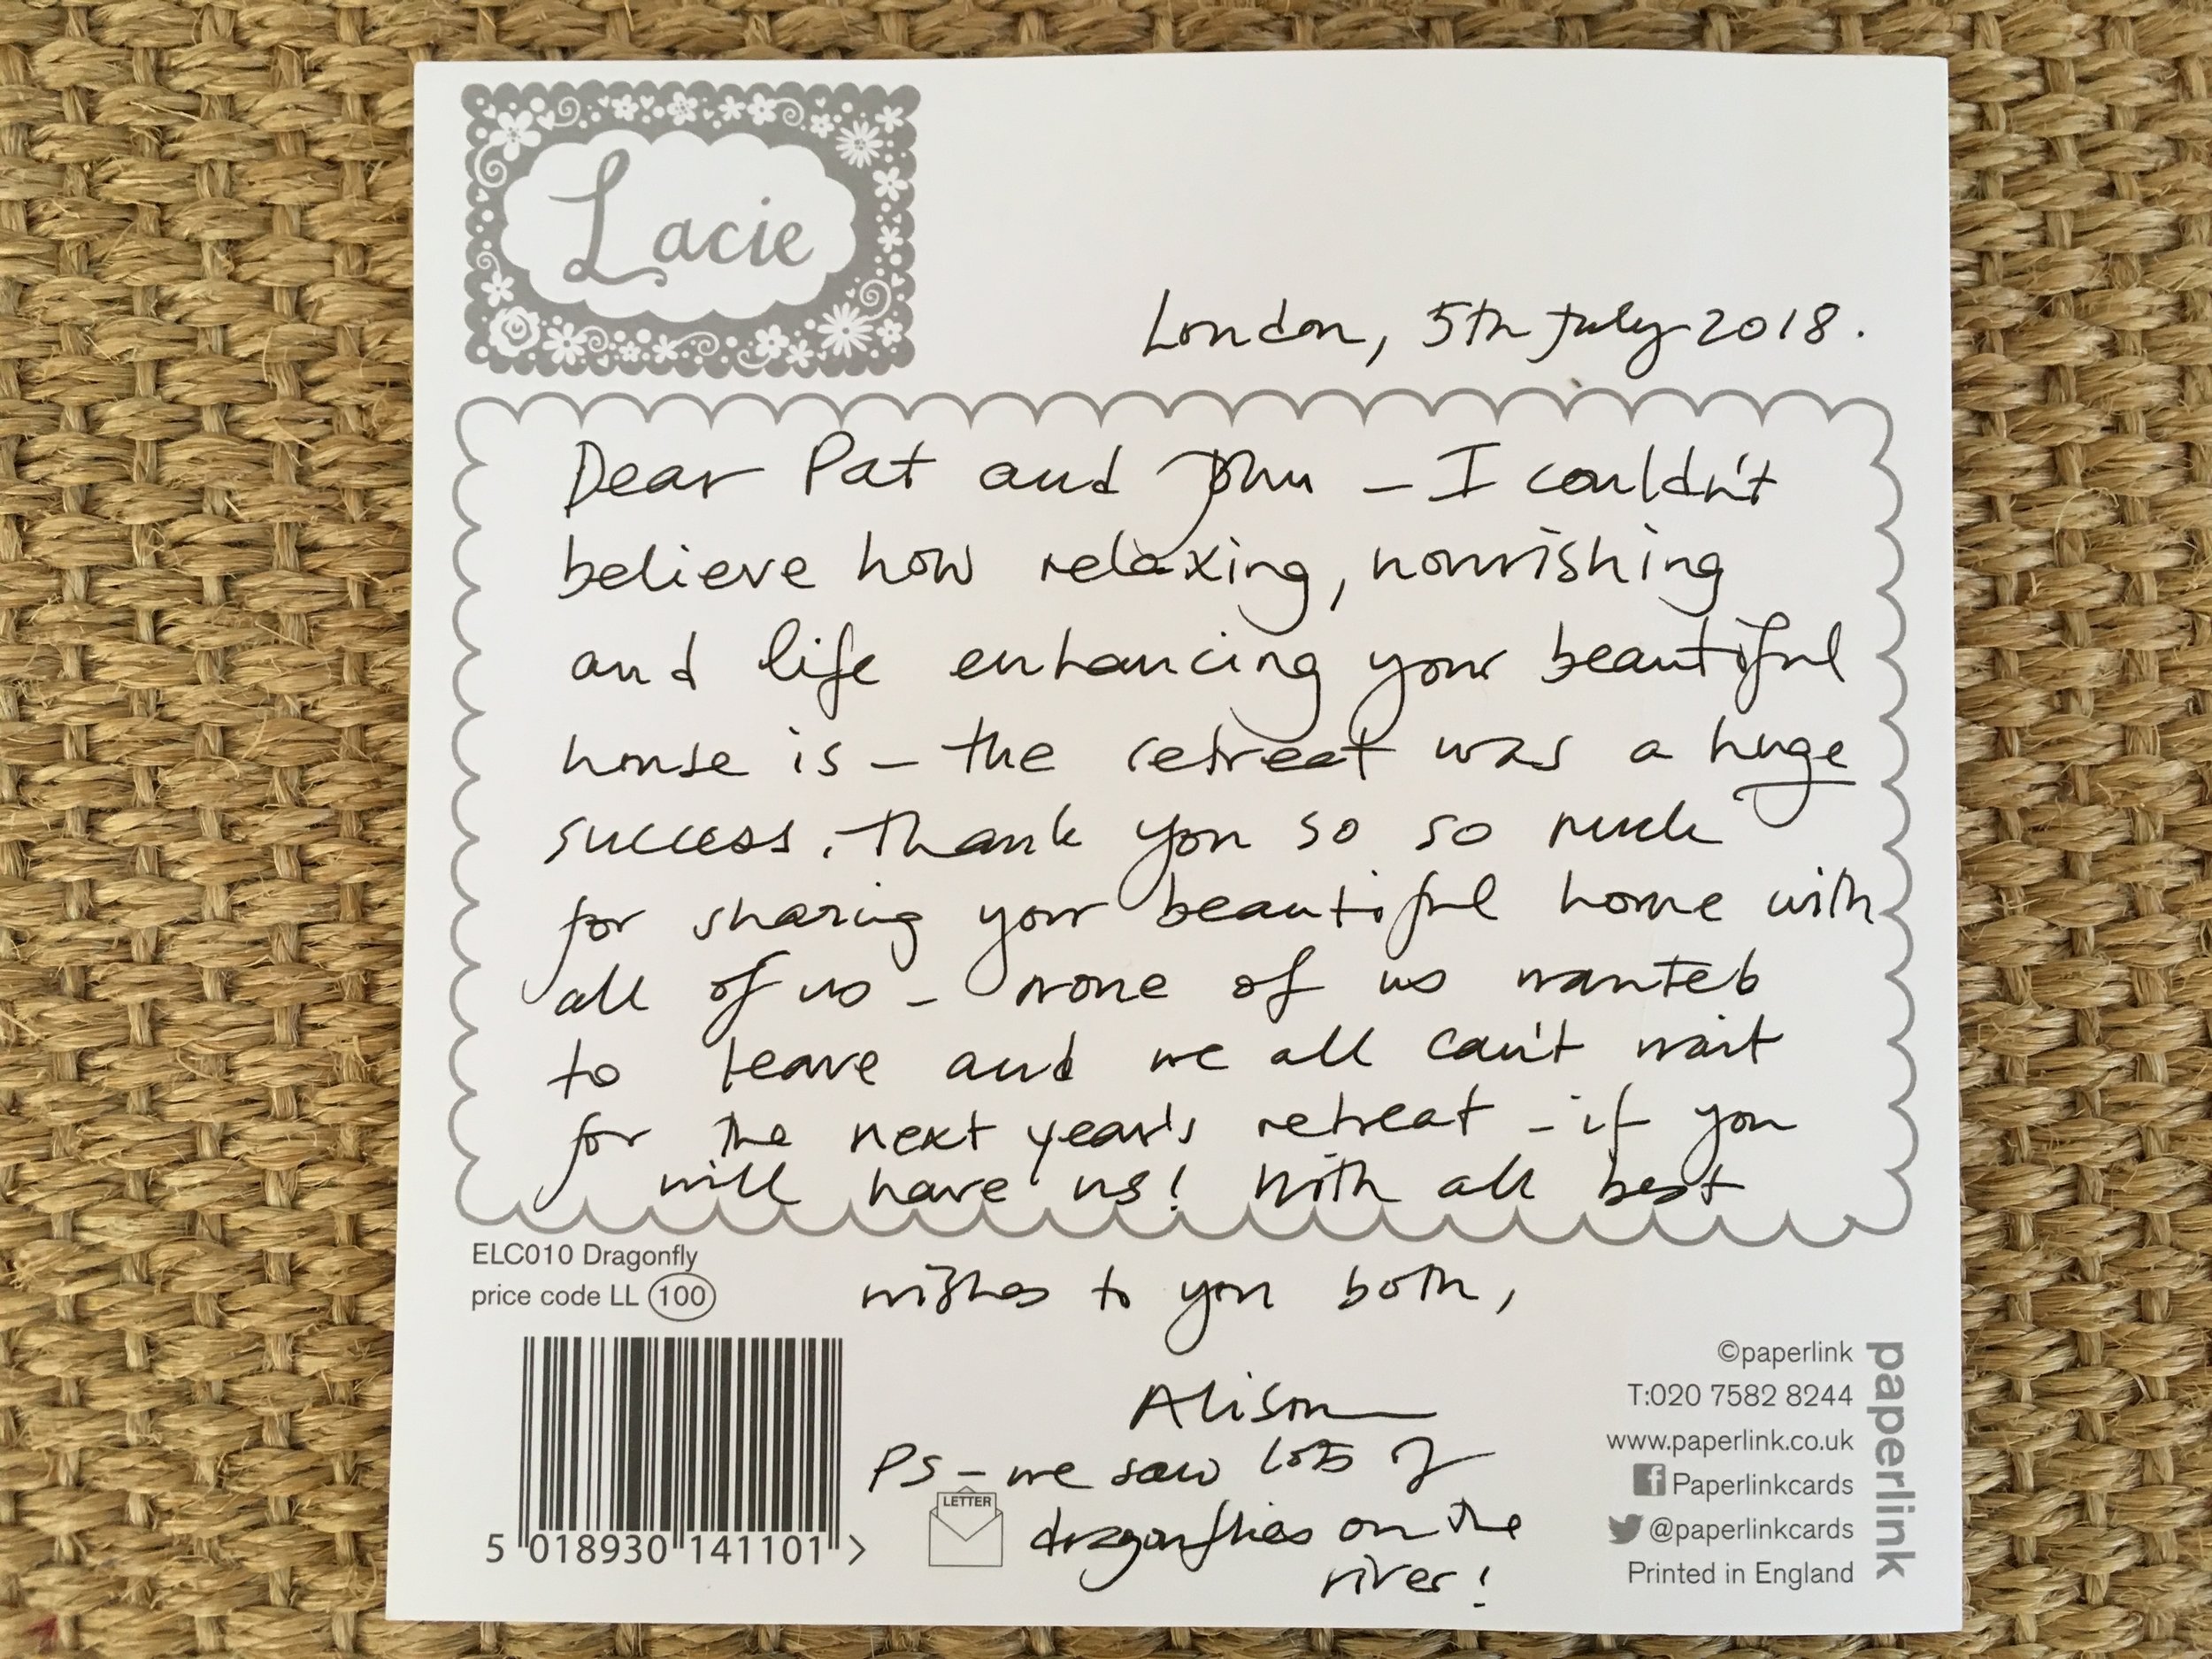 Lacie
London, 5th July 2018.
Dear Pat and John – I couldn't
believe how relaxing, nourishing
and life enhancing your beautiful
house is – the retreat was a huge
success. Thank you so so much
for sharing your beautiful home with
all of us – none of us wanted
to leave and we all can't wait
for the next year's retreat – if you
will have us! With all best
wishes to you both,
Alison
PS – we saw lots of
dragonflies on the
river!
ELC010 Dragonfly
price code LL 100
5 018930 141101 >
LETTER
©paperlink
T:020 7582 8244
www.paperlink.co.uk
Paperlinkcards
@paperlinkcards
Printed in England
paperlink